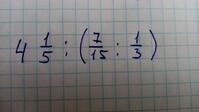 4 1/5 : (7/15 : 1/3)